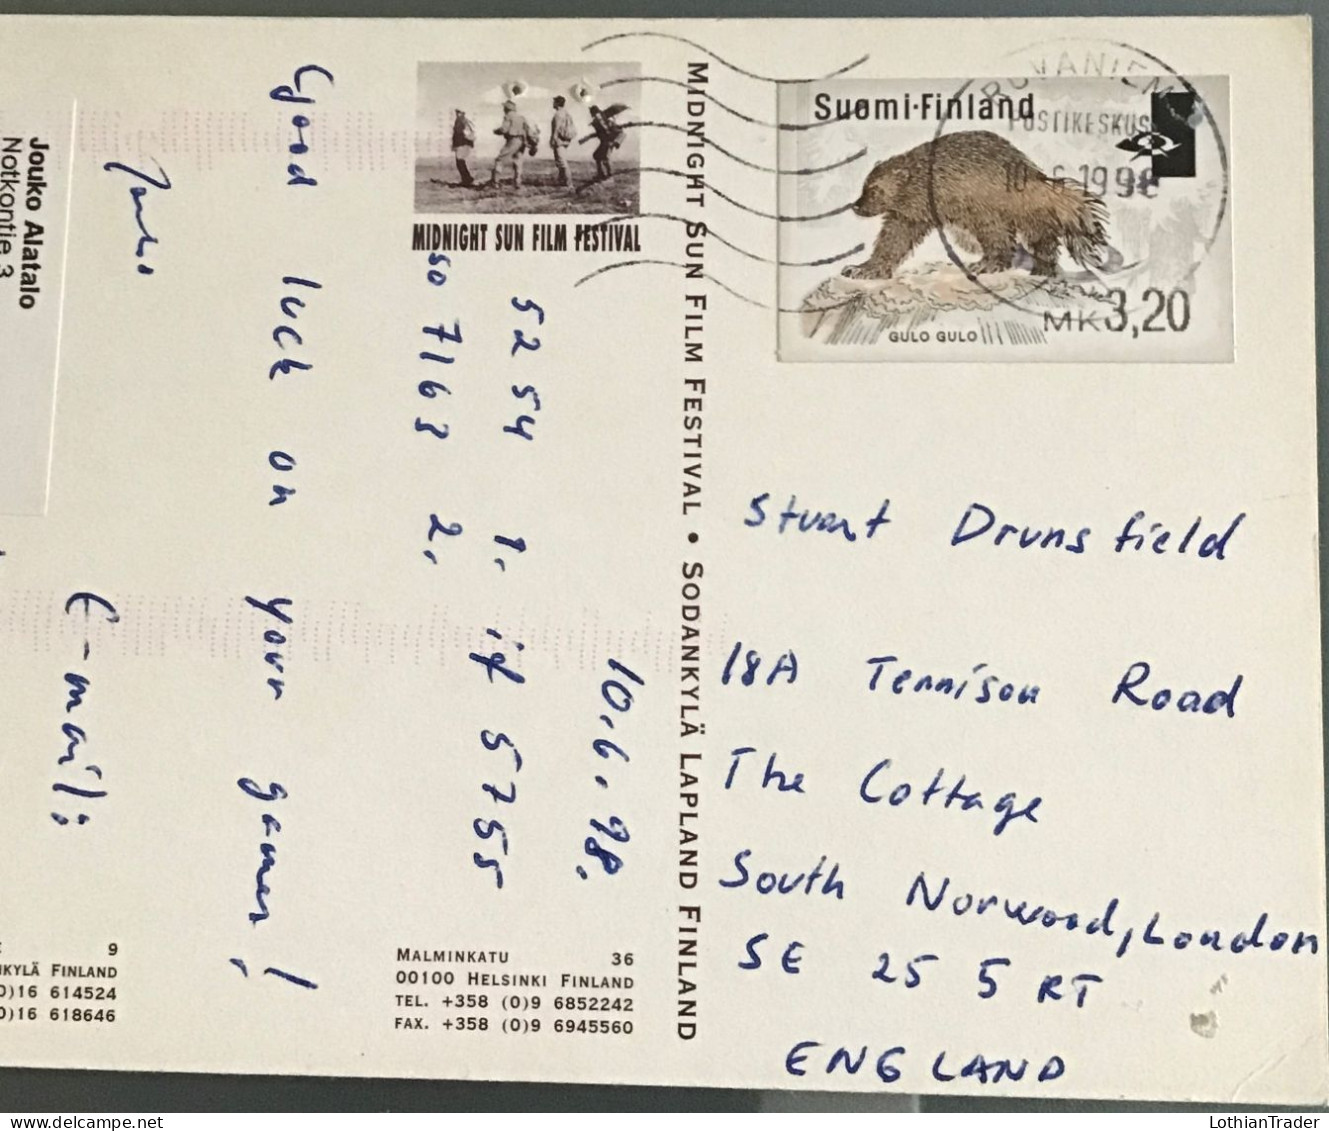 Jouko Alatalo
Notkontie 3
E-mail:
Jouko
Good luck on your games!
so 7163 2.
5254 1. if 5755
10.6.98.
MIDNIGHT SUN FILM FESTIVAL
9
KYLÄ FINLAND
0)16 614524
0)16 618646
MALMINKATU 36
00100 HELSINKI FINLAND
TEL. +358 (0)9 6852242
FAX. +358 (0)9 6945560
MIDNIGHT SUN FILM FESTIVAL • SODANKYLÄ LAPLAND FINLAND
SUOMI·FINLAND
ROVANIEMI
POSTIKESKUS
10-6.1998
GULO GULO
MK3,20
Stuart Drunsfield
18A Tennison Road
The Cottage
South Norwood, London
SE 25 5 RT
ENGLAND
LothianTrader